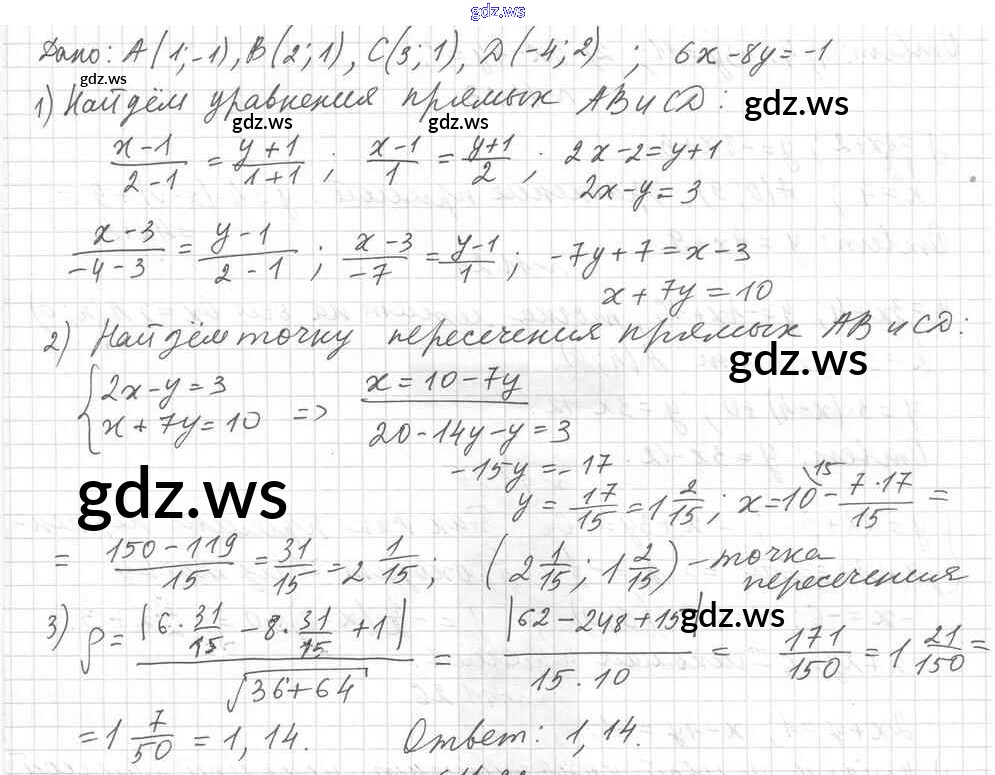 gdz.ws
Дано: A(1;-1), B(2;1), C(3;1), D(-4;2) ; 6x-8y=-1
gdz.ws
1) Найдём уравнения прямых AB и CD:
gdz.ws gdz.ws gdz.ws
(x-1)/(2-1) = (y+1)/(1+1) ; (x-1)/1 = (y+1)/2 ; 2x-2=y+1
2x-y=3
(x-3)/(-4-3) = (y-1)/(2-1) ; (x-3)/(-7) = (y-1)/1 ; -7y+7=x-3
x+7y=10
2) Найдём точку пересечения прямых AB и CD:
gdz.ws
{2x-y=3
x+7y=10 => x=10-7y
20-14y-y=3
-15y=-17
gdz.ws
y = 17/15 = 1 2/15 ; x=10\15 - 7·17/15 =
= (150-119)/15 = 31/15 = 2 1/15 ; (2 1/15 ; 1 2/15) - точка
пересечения
gdz.ws
3) ρ = |6·31/15 - 8·31/15 + 1| / √(36+64) = |62-248+15| / (15·10) = 171/150 = 1 21/150 =
= 1 7/50 = 1,14. Ответ: 1,14.